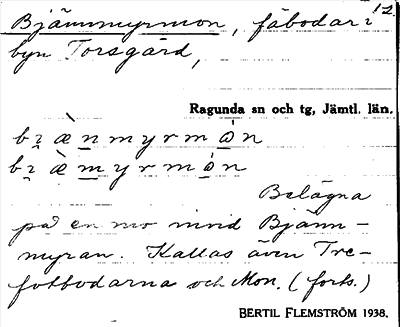 12.
Bjännmyrmon, fäbodar i
byn Torsgård,
Ragunda sn och tg, Jämtl. län.
Belägna
på en mo invid Bjänn-
myran. Kallas även Tre-
fotbodarna och Mon. (forts.)
BERTIL FLEMSTRÖM 1938.